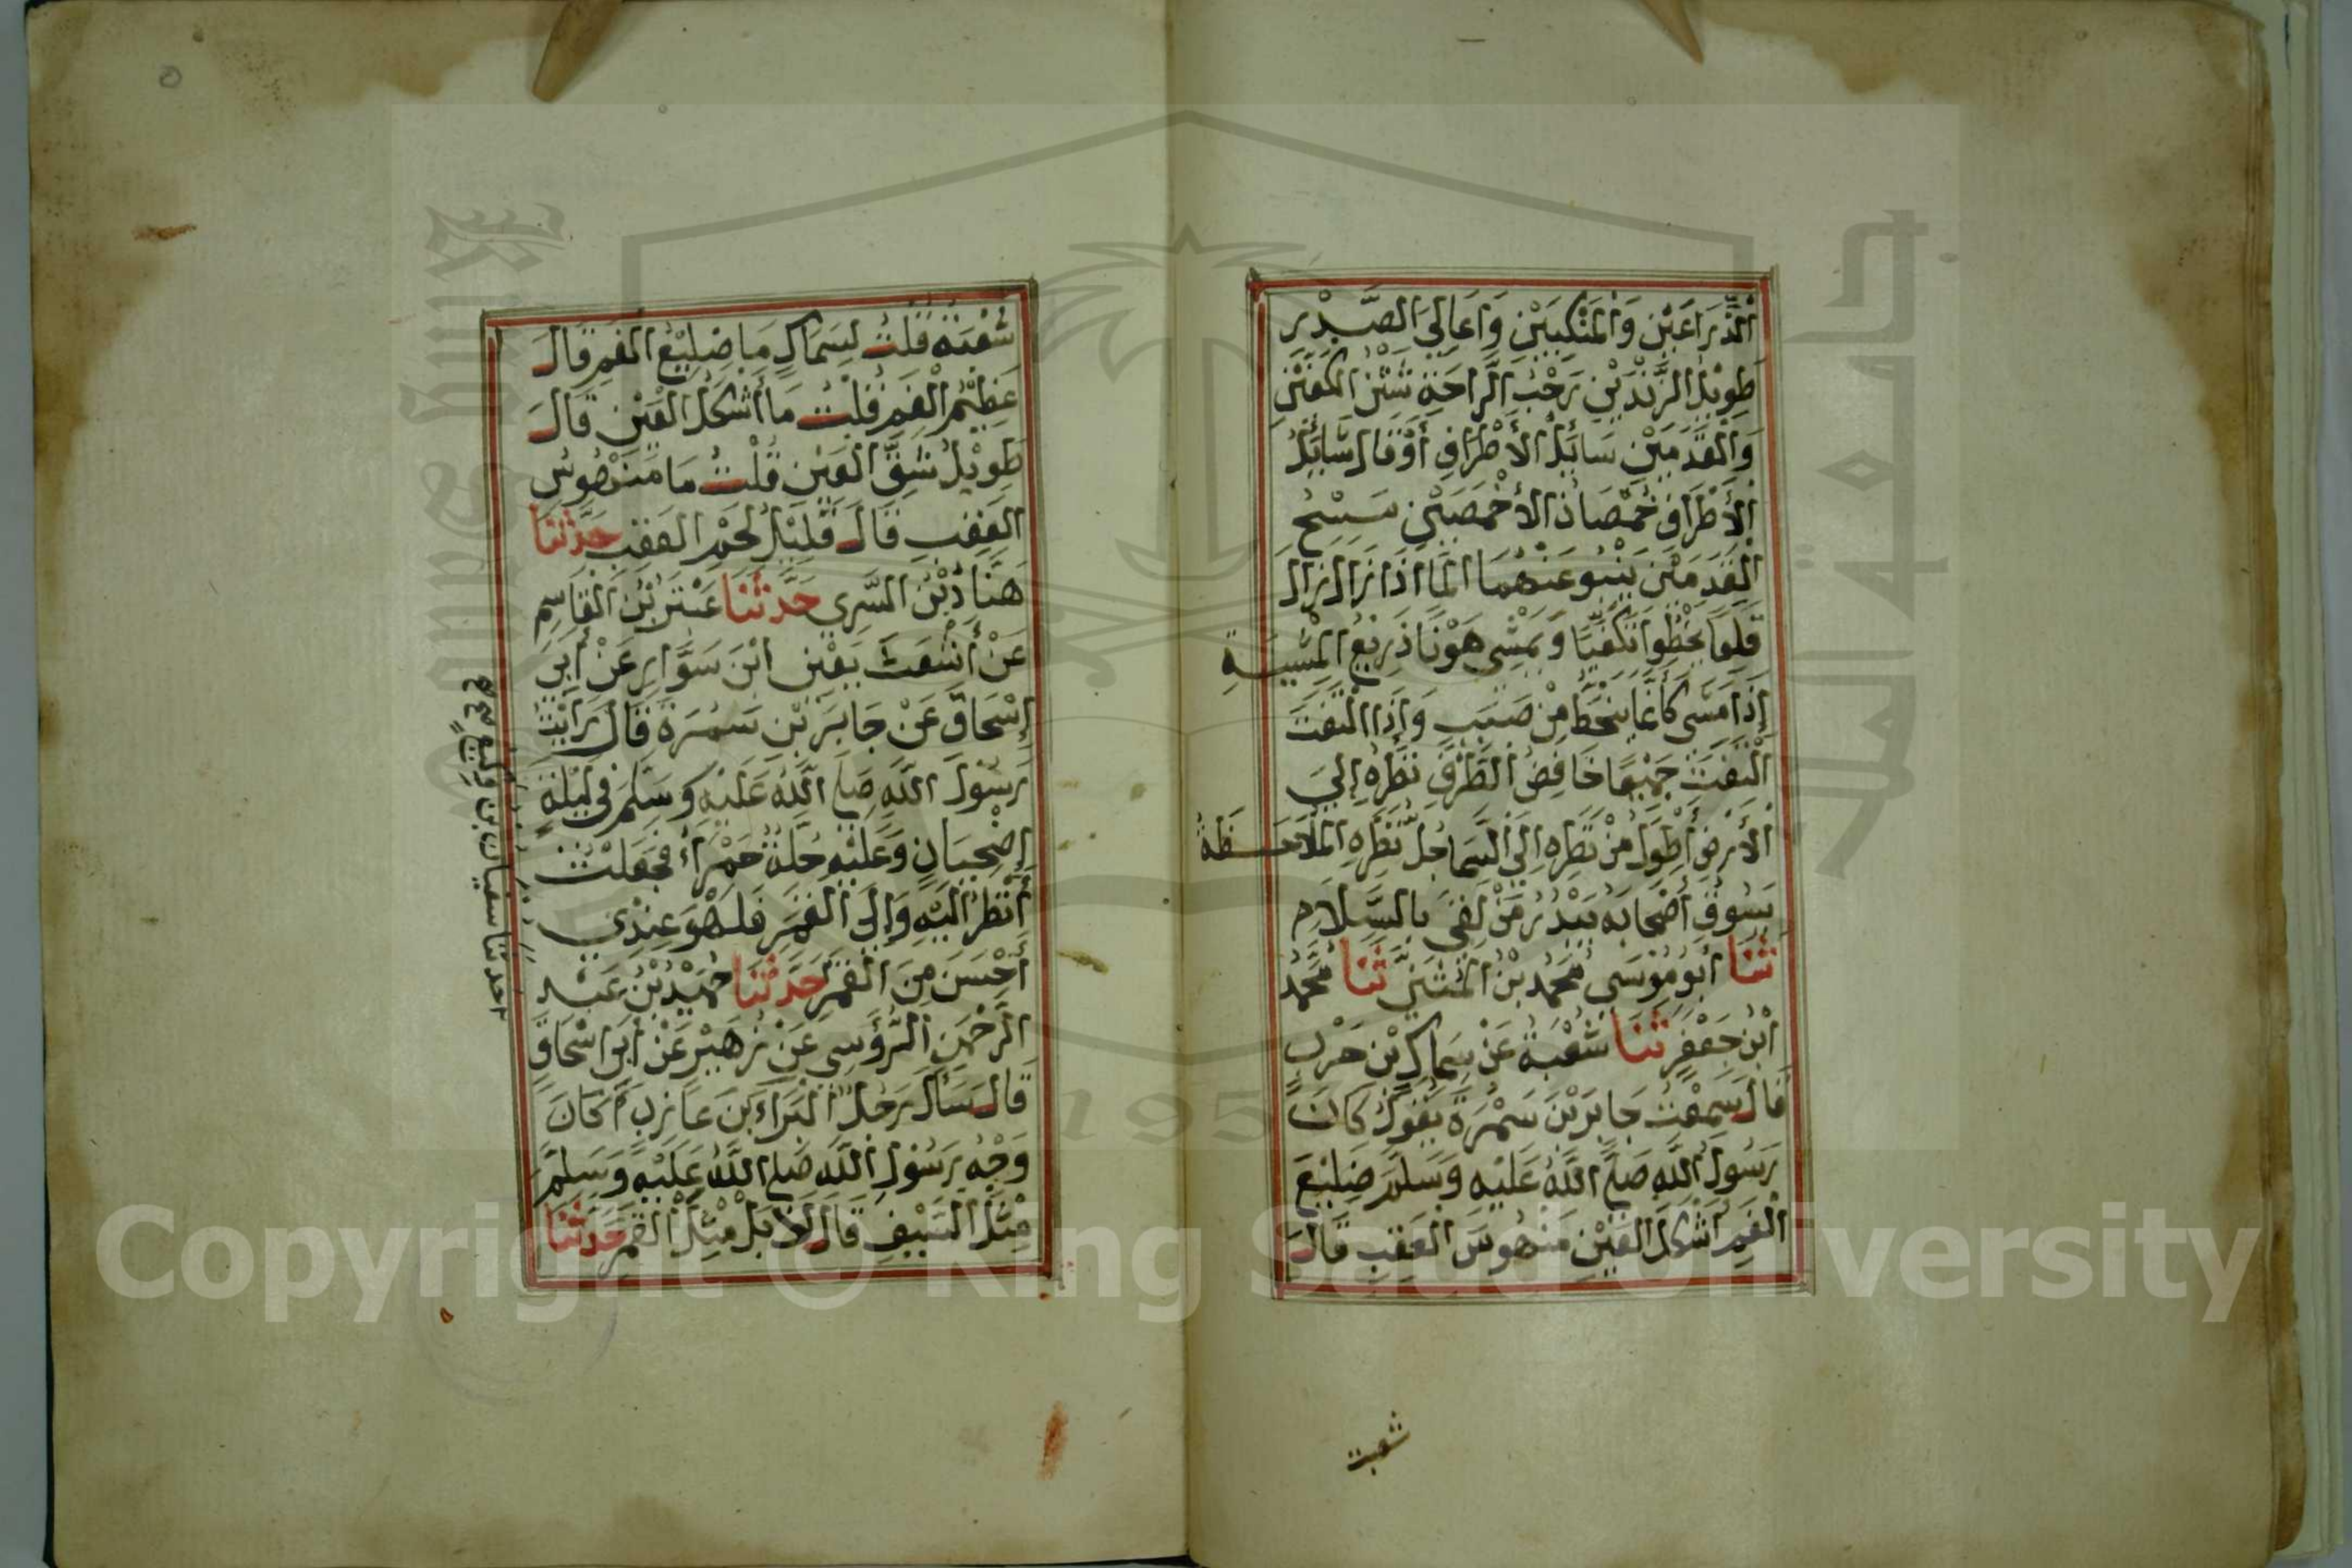 الذِّرَاعَيْنِ وَالْمَنْكِبَيْنِ وَأَعَالِيَ الصَّدْرِ
طَوِيْلُ الزَّنْدَيْنِ رَحْبُ الرَّاحَةِ شَثْنُ الْكَفَّيْنِ
وَالْقَدَمَيْنِ سَائِلُ الأَطْرَافِ أَوْقَالَ سَائِلُ
الأَطْرَافِ خُمْصَانُ الأَخْمَصَيْنِ مَسِيْحُ
الْقَدَمَيْنِ يَنْبُو عَنْهُمَا الْمَا اذَا زَالَ زَالَ
قَلِعًا يَخْطُوا تَكَفِّيًا وَيَمْشِي هَوْنًا ذَرِيْعُ الْمِشْيَةِ
إِذَا مَشَى كَأَنَّمَا يَنْحَطُّ مِنْ صَبَبٍ وَإِذَا الْتَفَتَ
الْتَفَتَ جَمِيْعًا خَافِضُ الطَّرْفِ نَظَرُهُ إِلَىَ
الأَرْضِ أَطْوَلُ مِنْ نَظَرِهِ إِلَى السَّمَا جُلُّ نَظَرِهِ الْمُلاَحَظَةُ
يَسُوقُ أَصْحَابَهُ يَبْدُرُ مَنْ لَقِيَ بِالسَّلاَمِ
ثَنَا أَبُو مُوْسَى مُحَمَّدُ بْنُ الْمُثَنَّى ثَنَا مُحَمَّدُ
ابْنُ جَعْفَرٍ ثَنَا شُعْبَةُ عَنْ سِمَاكِ بْنِ حَرْبٍ
قَالَ سَمِعْتُ جَابِرَ بْنَ سَمُرَةَ يَقُولُ كَانَ
رَسُولُ اللَّهِ صَلَّى اللَّهُ عَلَيْهِ وَسَلَّمَ ضَلِيْعَ
الْفَمِ أَشْكَلَ الْعَيْنِ مَنْهُوسَ الْعَقِبِ قَالَ
شعبة
شُعْبَةُ قُلْتُ لِسِمَاكٍ مَا ضَلِيْعُ الْفَمِ قَالَ
عَظِيْمُ الْفَمِ قُلْتُ مَا أَشْكَلُ الْعَيْنِ قَالَ
طَوِيْلُ شَقِّ الْعَيْنِ قُلْتُ مَا مَنْهُوسُ
الْعَقِبِ قَالَ قَلِيْلُ لَحْمِ الْعَقِبِ حَدَّثَنَا
هَنَّادُ بْنُ السَّرِي حَدَّثَنَا عَبْثَرُ بْنُ الْقَاسِمِ
عَنْ أَشْعَثَ يَعْنِي ابْنَ سَوَّارٍ عَنْ أَبِي
إِسْحَاقَ عَنْ جَابِرِ بْنِ سَمُرَةَ قَالَ رَأَيْتُ
رَسُولَ اللَّهِ صَلَّى اللَّهُ عَلَيْهِ وَسَلَّمَ فِي لَيْلَةٍ
إِضْحِيَانٍ وَعَلَيْهِ حُلَّةٌ حَمْرَاءُ فَجَعَلْتُ
أَنْظُرُ إِلَيْهِ وَإِلَى الْقَمَرِ فَلَهُوَ عِنْدِي
أَحْسَنُ مِنَ الْقَمَرِ حَدَّثَنَا حُمَيْدُ بْنُ عَبْدِ
الرَّحْمَنِ الرُّؤَسِي عَنْ زُهَيْرٍ عَنْ أَبِي اسْحَاقَ
قَالَ سَأَلَ رَجُلٌ الْبَرَاءَ بْنَ عَازِبٍ أَكَانَ
وَجْهُ رَسُوْلِ اللَّهِ صَلَّى اللَّهُ عَلَيْهِ وَسَلَّمَ
مِثْلَ السَّيْفِ قَالَ لاَ بَلْ مِثْلَ الْقَمَرِ حَدَّثَنَا
حدثنا سفيان بن وكيع صح
Copyright © King Saud University
1957